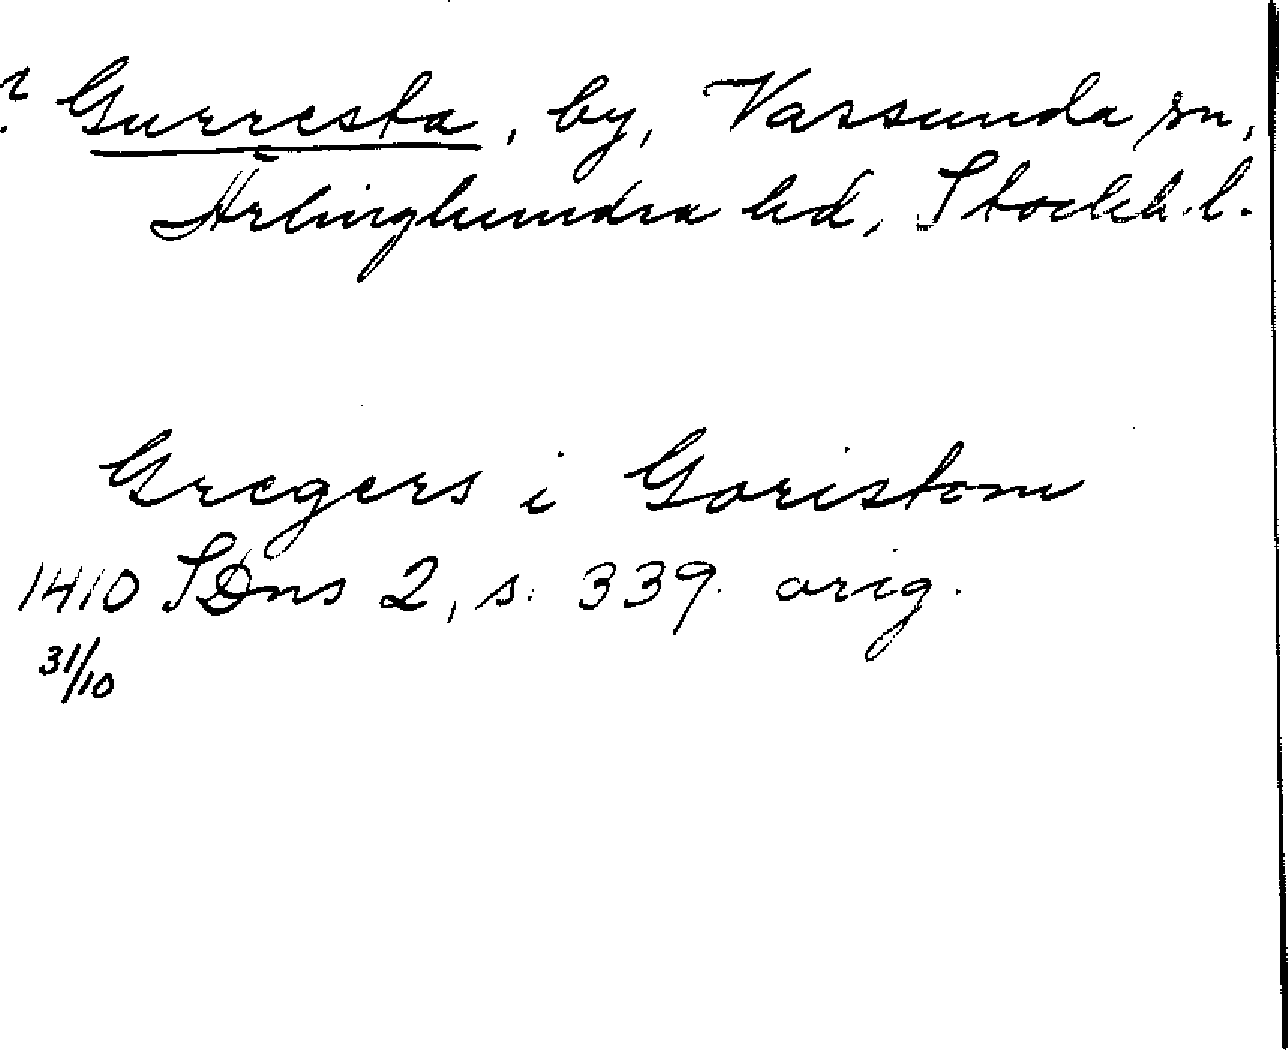 ? Gurresta, by, Vassunda sn,
Ärlinghundra hd, Stockh. l.
Gregers i Goristom
1410 SDns 2, s. 339. orig.
31/10